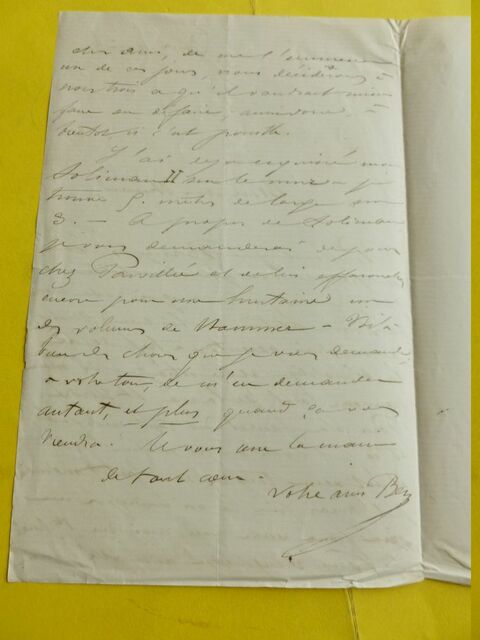 cher ami, de me l'emmener
un de ces jours, nous déciderons à
nous trois ce qu'il vaudrait mieux
faire ou défaire, à
bientôt si c'est possible.
J'ai déjà esquissé mon
Soliman II sur le mur
5 mètres de large sur
3. — A propos de Soliman
je vous demanderai de
chez Parvillée et de lui
encore pour une huitaine un
des volumes de Hammer — Voilà
bien des choses que je vous demande,
à votre tour, de m'en demander
autant, et plus quand ça vous
viendra. Je vous serre la main
de tout cœur.
Votre ami Benj